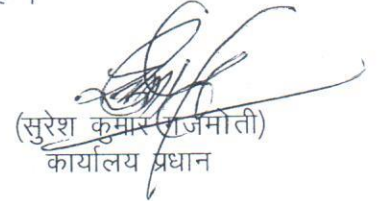 (सुरेश कुमार गजमोती)
कार्यालय प्रधान